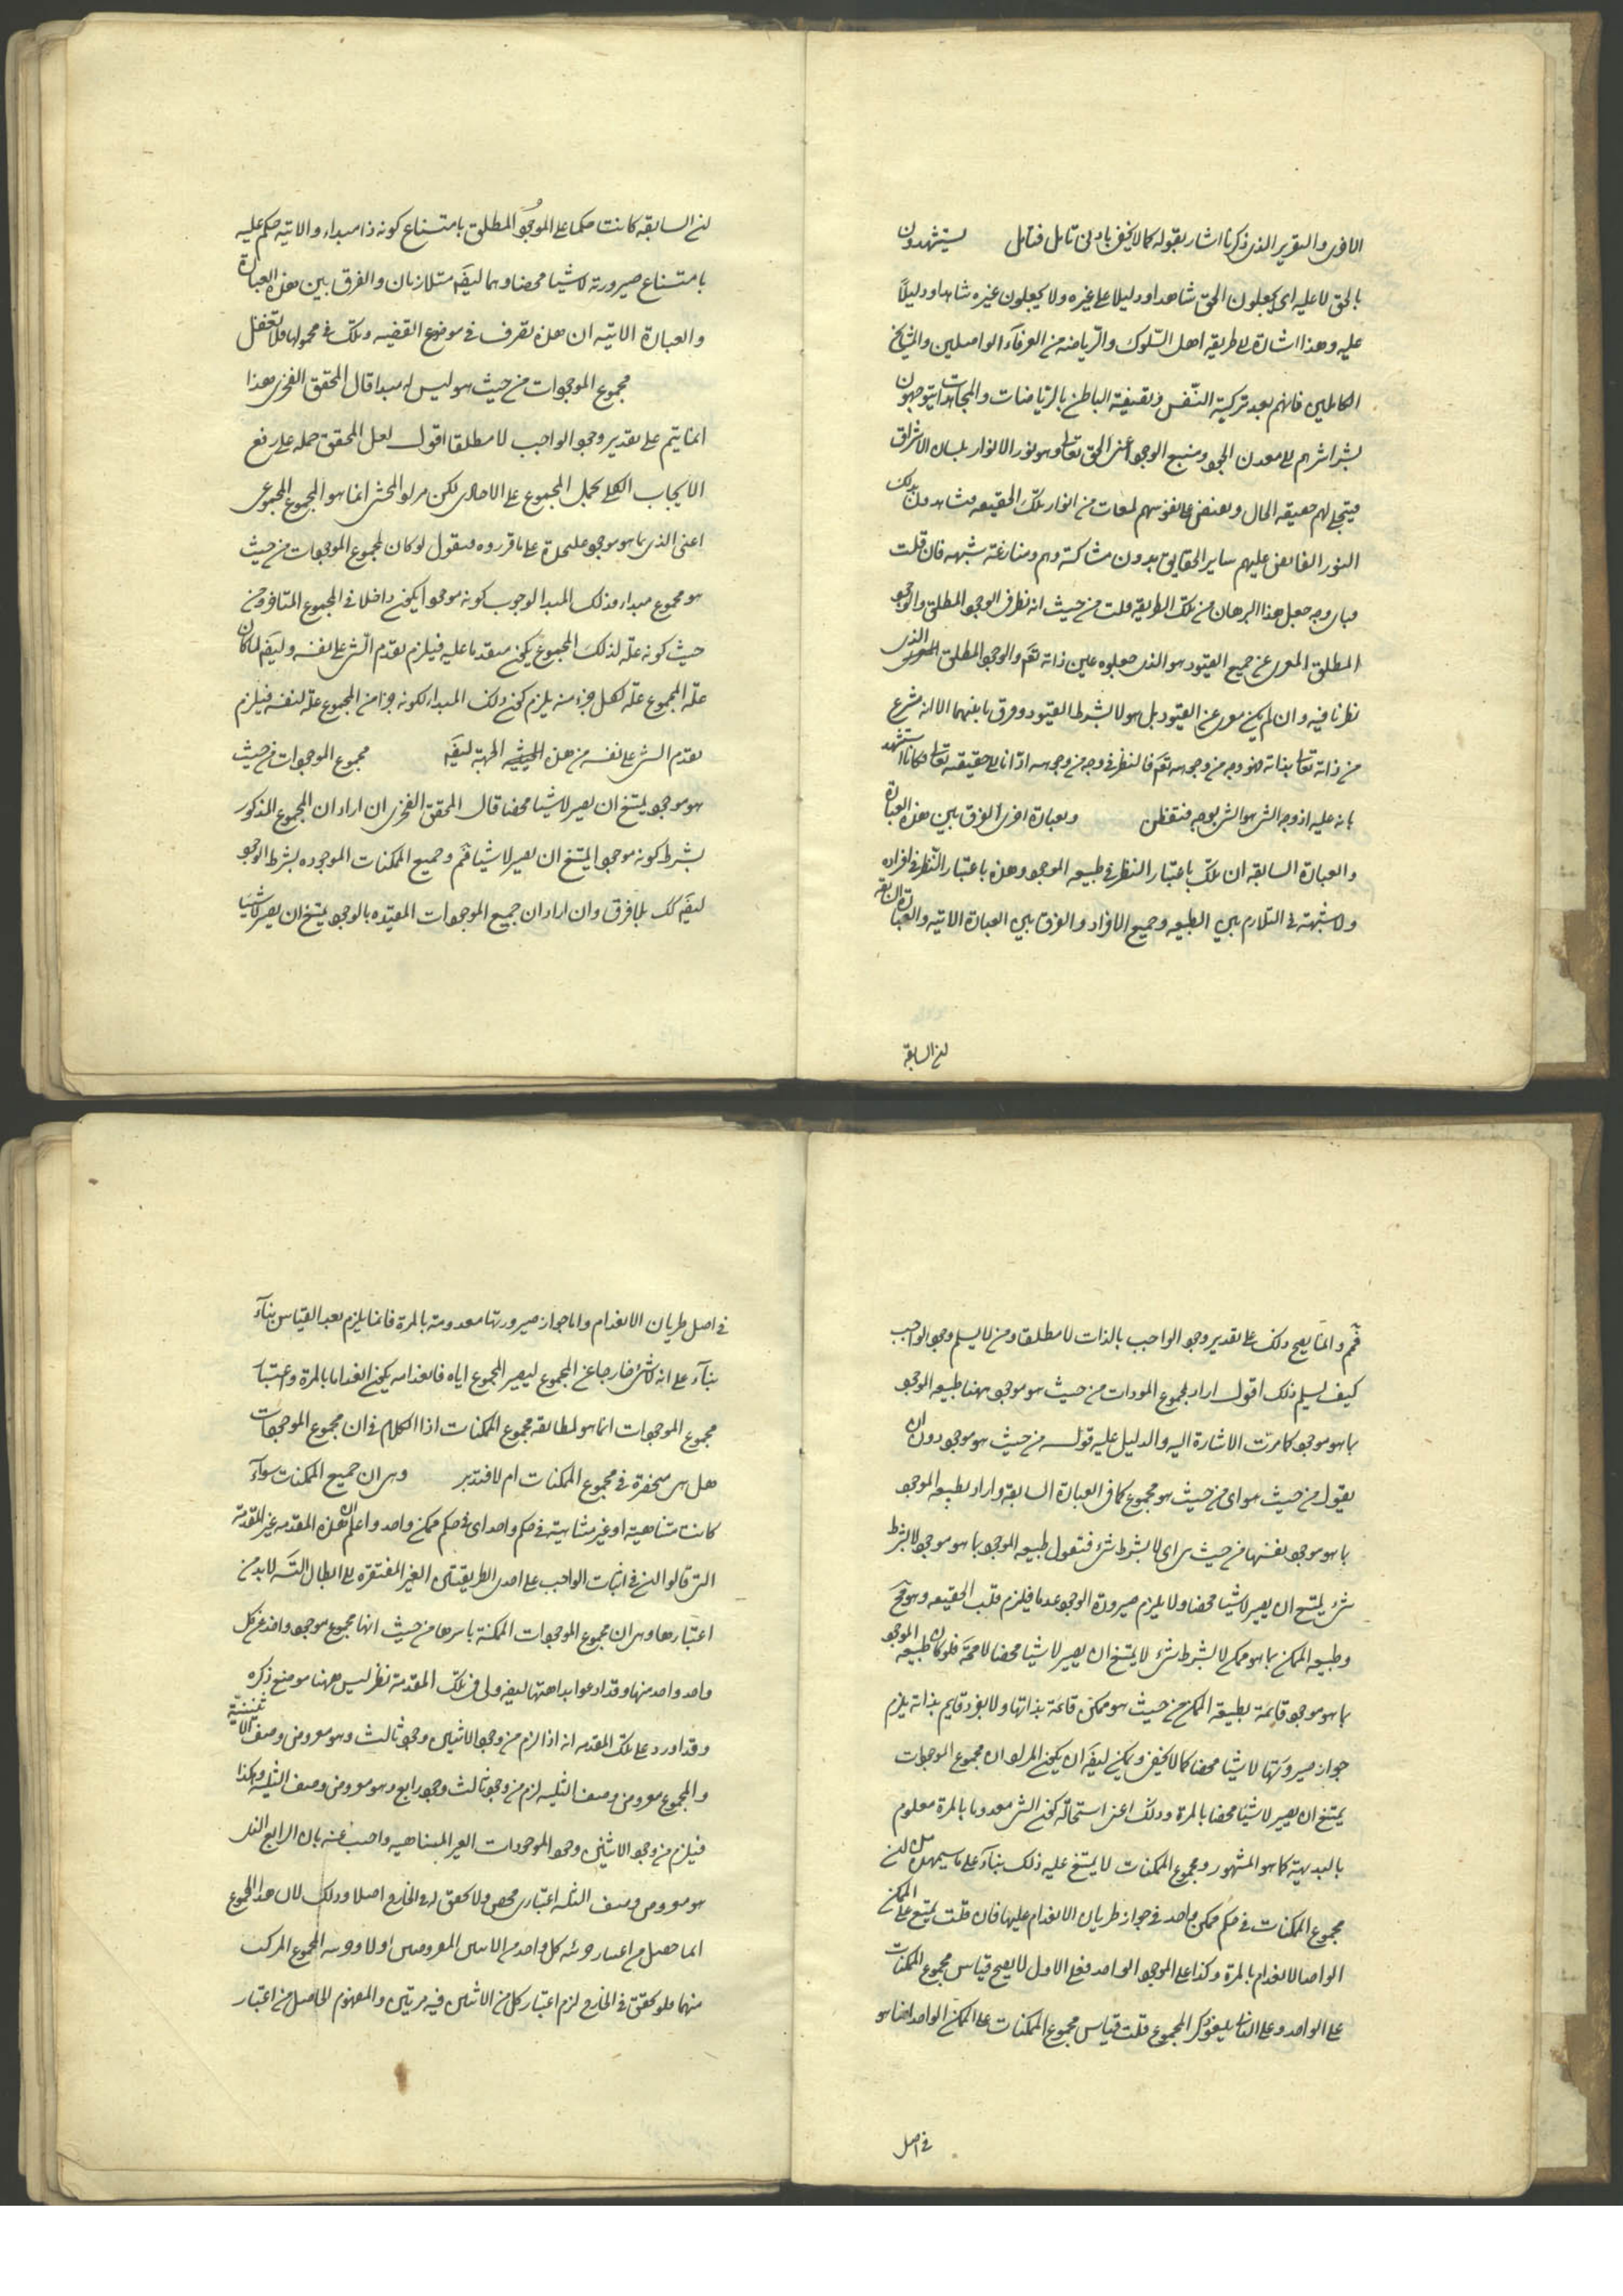 الاخرى والتقرير الذى ذكرنا اشار بقوله كما لا يخفى بادنى تامل فتامل يستشهدون
بالحق لا عليه اى يجعلون الحق شاهدا ودليلا على غيره ولا يجعلون غيره شاهدا ودليلاً
عليه وهذا اشارة الى طريقه اهل السّلوك والرّياضه من العرفآء الواصلين والمشايخ
الكاملين فانهم بعد تزكية النّفس وتصفية الباطن بالرّياضات والمجاهدات يتوجهون
بشراشرهم الى معدن الجود ومنبع الوجود اعنى الحق تعالى وهو نور الانوار بلسان الاشراق
فيتجلى لهم حقيقه الحال ويفيض على نفوسهم لمعات من انوار تلك الحقيقه فيشاهدون بذلك
النور الفايض عليهم ساير الحقايق بدون مشاكسة وهم ومنازعة شبهه فان قلت
فباى وجه جعل هذا البرهان من تلك الطريقه قلت من حيث انه نظر فى الوجود المطلق والوجود
المطلق المعرى عن جميع القيود هو الذى جعلوه عين ذاته تعم والوجود المطلق الذى
نظرنا فيه وان لم يكن معرى عن القيود بل هو لا بشرط القيود وفرق ما بينهما الا انه منتزع
من ذاته تعالى بذاته فهو وجه من وجوهه تعم فالنظر فى وجه من وجوهه ادّانا الى حقيقته تعالى فكانا استشهد
بانه عليه اذ وجه الشى هو الشى بوجه فتفطن وبعبارة اخرى الفرق بين هذه العبارة
والعبارة السابقه ان تلك باعتبار النظر فى طبيعه الموجود وهذه باعتبار النّظر فى افراده
ولا شبهة فى التلازم بين الطبيعه وجميع الافراد والفرق بين العبارة الاتيه والعبارة السابقه
لان السابقة
لان السابقه كانت حكما على الموجود المطلق بامتناع كونه ذا مبداء والاتيه حكم عليه
بامتناع صيرورته لا شيئا محضا وهما ايضَ متلازمان والفرق بين هذه العبارة
والعبارة الاتيه ان هذه تصرف فى موضوع القضيه وتلك فى محمولها فلا تغفل
مجموع الموجودات من حيث هو ليس له مبدا قال المحقق الفخرى هذا
انما يتم على تقدير وجود الواجب لا مطلقا اقول لعل المحقق حمله على رفع
الايجاب الكلى بحمل المجموع على الاحادى لكن مراد المحشى انما هو المجموع المجموعى
اعنى الذى بما هو موجود عليحدة على ما قرروه فنقول لو كان لمجموع الموجودات من حيث
هو مجموع مبداء فذلك المبدا لوجوب كونه موجودا يكون داخلا فى المجموع المتاخر ومن
حيث كونه علّة لذلك المجموع يكون متقدما عليه فيلزم تقدم الشى على نفسه وايضَ لما كان
علّة المجموع علّة لكل جزء منه يلزم كون ذلك المبداء لكونه جزا من المجموع علّة لنفسه فيلزم
تقدم الشى على نفسه من هذه الجهة ايضَ مجموع الموجودات من حيث
هو موجود يمتنع ان يصير لا شيئا محضا قال المحقق الفخرى ان اراد ان المجموع المذكور
بشرط كونه موجودا يمتنع ان يصير لا شيئا فمّ وجميع الممكنات الموجوده بشرط الوجود
ايضَ كك بلا فرق وان اراد ان جميع الموجودات المقيّده بالوجود يمتنع ان يصير لا شيئا
فمّ وانّما يصح ذلك على تقدير وجود الواجب بالذات لا مطلقا ومن لا يسلم وجود الواجب
كيف يسلم ذلك اقول اراد بمجموع الموجودات من حيث هو موجود ههنا طبيعه الموجود
بما هو موجود كما مرّت الاشارة اليه والدليل عليه قوله من حيث هو موجود دون ان
يقول من حيث هو اى من حيث هو مجموع كما فى العبارة السابقه واراد بطبيعه الموجود
بما هو موجود نفسها من حيث هى اى لا بشرط شئ فنقول طبيعه الموجود بما هو موجود لا بشرط
شئ يمتنع ان يصير لا شيئا محضا والا يلزم صيرورة الوجود عدما فيلزم قلب الحقيقه وهو مح
وطبيعه الممكن بما هو ممكن لا بشرط شئ لا يمتنع ان يصير لا شيئا محضا لا محة فلو كان طبيعه الموجود
بما هو موجود قائمة بطبيعة الممكن من حيث هو ممكن قائمة بذاتها ولا بفرد قايم بذاته يلزم
جواز صيرورتها لا شيئا محضا كما لا يخفى ويمكن ايضَ ان يكون المراد ان مجموع الموجودات
يمتنع ان يصير لا شيئا محضا بالمرة وذلك اعنى استحالة كون الشى معدوما بالمرة معلوم
بالبديهة كما هو المشهور ومجموع الممكنات لا يمتنع عليه ذلك بناءً على ما سيمهده من ان
مجموع الممكنات فى حكم ممكن واحد فى جواز طريان الانعدام عليها فان قلت يمتنع على الممكن
الواحد الانعدام بالمرة وكذا على الموجود الواحد فعلى الاول لا يصح قياس مجموع الممكنات
على الواحد وعلى الثانى يلغو ذكر المجموع قلت قياس مجموع الممكنات على الممكن الواحد انما هو
فى اصل
فى اصل طريان الانعدام واما جواز صيرورتها معدومة بالمرة فانما يلزم بعد القياس بناءً
بناءً على انه لا شئ خارجا عن المجموع ليصير المجموع اياه فانعدامه يكون انعداما بالمرة واعتبار
مجموع الموجودات انما هو لمطابقه مجموع الممكنات اذا الكلام فى ان مجموع الموجودات
هل هى منحصرة فى مجموع الممكنات ام لا فتدبر وهى ان جميع الممكنات سواءً
كانت متناهية او غير متناهية فى حكم واحد اى فى حكم ممكن واحد واعلم ان هذه المقدمه غير المقدمة
التى قالوا ان فى اثبات الواجب على احدى الطريقتين الغير المفتقره الى ابطال التسَ لابد من
اعتبارها وهى ان مجموع الموجودات الممكنة باسرها من حيث انها مجموع موجود واحد غير كل
واحد واحد منها وقد ادعوا بداهتها ايضَ ولى فى تلك المقدمة نظر ليس ههنا موضع ذكره
وقد اورد على تلك المقدمه انه اذا لزم من وجود الاثنين وجود ثالث وهو معروض وصف الاثنينيّة
والمجموع معروض وصف الثلثيه لزم من وجود ثالث وجود رابع وهو معروض وصف الثلثيه وهكذا
فيلزم من وجود الاثنين وجود الموجودات الغير المتناهيه واجيب عنه بان الرابع الذى
هو معروض وصف الثلثيه اعتبارى محض ولا تحقق له فى الخارج اصلا وذلك لان هذا المجموع
انما حصل من اعتبار جزئيه كل واحد من الاثنين المعروضين اولا وجزئيه المجموع المركب
منهما فلو تحقق فى الخارج لزم اعتبار كل من الاثنين فيه مرتين والمفهوم الحاصل من اعتبار